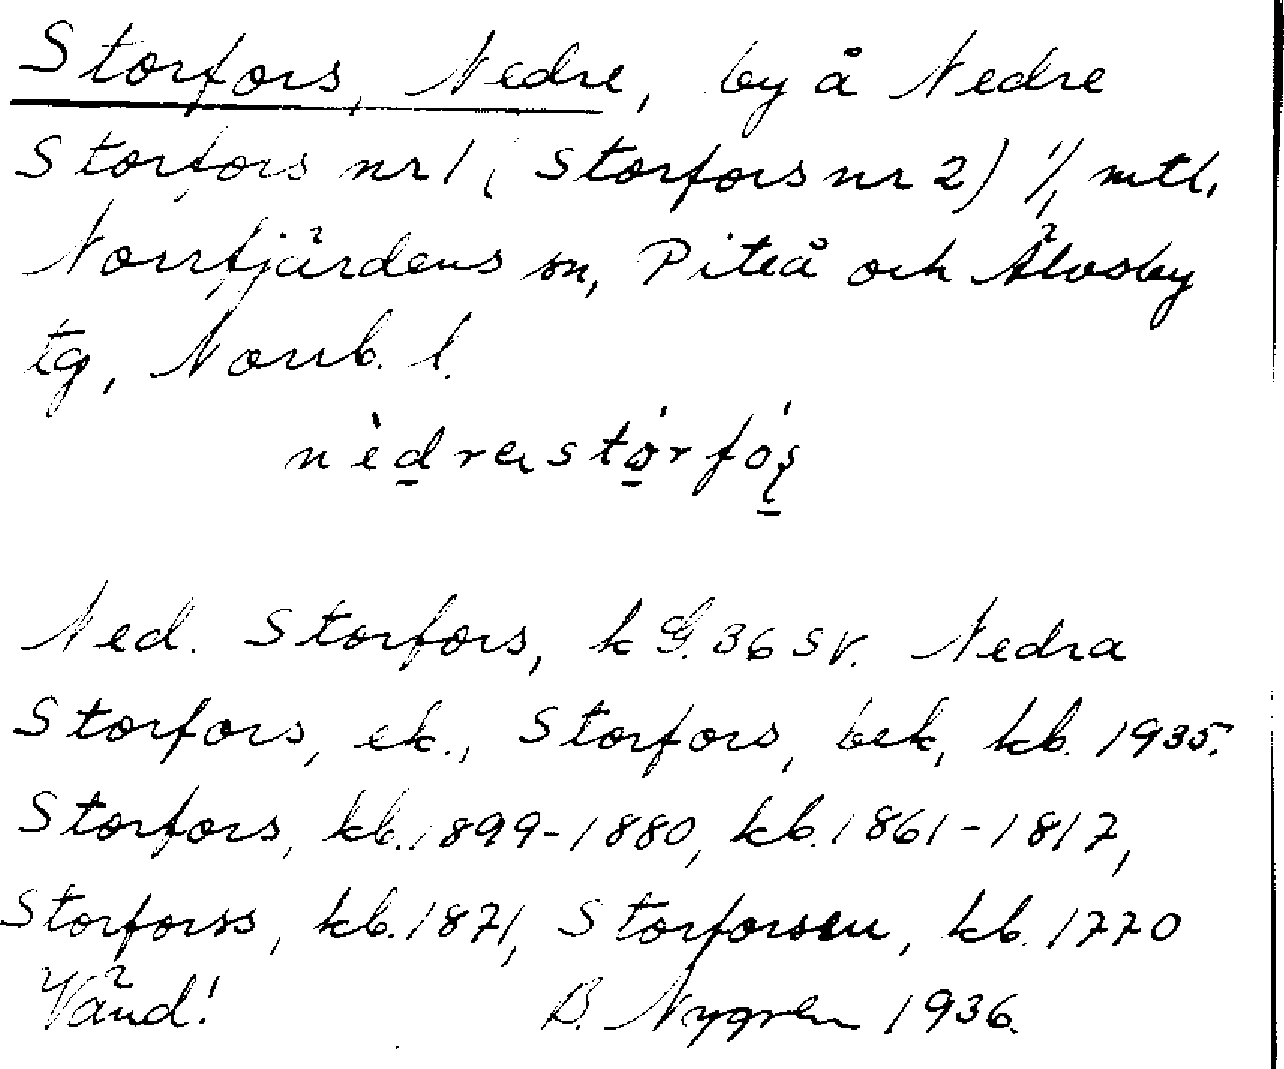 Storfors, Nedre, by å Nedre
Storfors nr 1 (Storfors nr 2) 1/1 mtl.
Norrfjärdens sn, Piteå och Älvsby
tg, Norrb. l.
nèdrastórfós
Ned. Storfors, k G. 36 SV. Nedra
Storfors, ek., Storfors, bek, kb. 1935.
Storfors, kb. 1899-1880, kb. 1861-1817,
Storforss, kb. 1871, Storforsen, kb. 1770
Vänd! B. Nygren 1936.